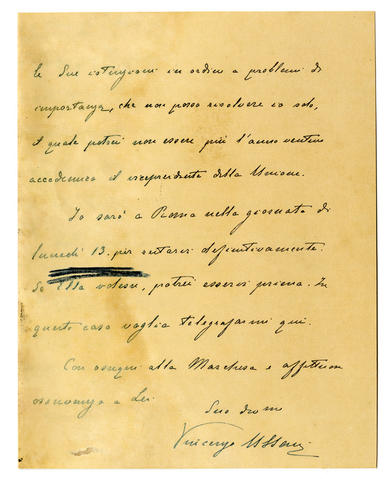 le Sue istruzioni in ordine a problemi di
importanza, che non posso risolvere io solo,
il quale potrei non essere più l'anno venturo
accademico il vicepresidente della Unione.
Io sarò a Roma nella giornata di
lunedì 13. per restarvi definitivamente.
Se Ella volesse, potrei esservi prima. In
questo caso voglia telegrafarmi qui.
Con ossequi alla Marchesa e affettuosa
osservanza a Lei
Suo dev.mo
Vincenzo Ussani